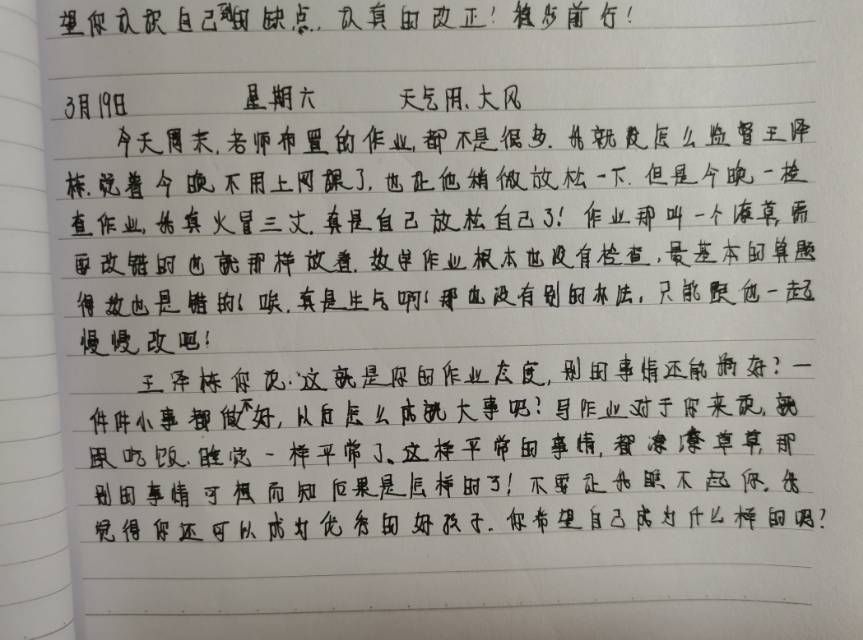 望你认识自己到的缺点,认真的改正!稳步前行!
3月19日 星期六 天气阴、大风
今天周末,老师布置的作业,都不是很多.我就没怎么监督王泽
栋.觉着今晚不用上网课了,也让他稍微放松一下.但是今晚一检
查作业,我真火冒三丈.真是自己放松自己了!作业那叫一个潦草,需
要改错的也就那样放着.数学作业根本也没有检查,最基本的算题
得数也是错的!唉.真是生气啊!那也没有别的办法,只能跟他一起
慢慢改吧!
王泽栋你说.这就是你的作业态度,别的事情还能搞好?一
件件小事都做不好,以后怎么成就大事呢?写作业对于你来说,就
跟吃饭.睡觉一样平常了、这样平常的事情,都潦潦草草,那
别的事情可想而知后果是怎样的了!不要让我瞧不起你.我
觉得你还可以成为优秀的好孩子.你希望自己成为什么样的呢?